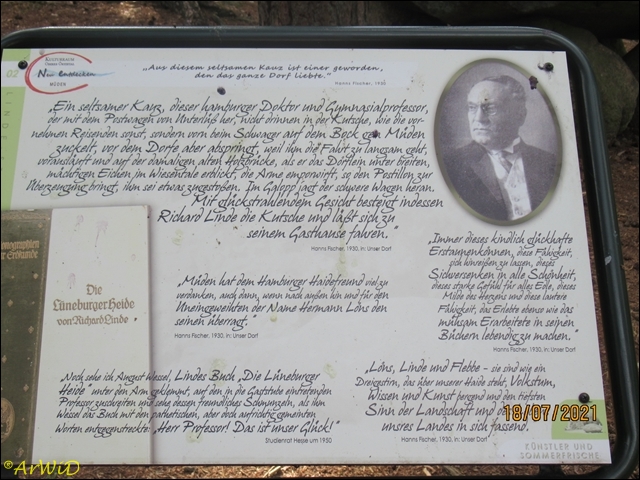 02
LINDE
KULTURRAUM
Unsere Oertzetal
Neu entdecken
MÜDEN
„Aus diesem seltsamen Kauz ist einer geworden,
den das ganze Dorf liebte."
Hanns Fischer, 1930
„Ein seltsamer Kauz, dieser hamburger Doktor und Gymnasialprofessor,
der mit dem Postwagen von Unterlüß her, nicht drinnen in der Kutsche, wie die vor-
nehmen Reisenden sonst, sondern vorn beim Schwager auf dem Bock gen Müden
zuckelt, vor dem Dorfe aber abspringt, weil ihm die Fahrt zu langsam geht,
vorausläuft und auf der damaligen alten Holzbrücke, als er das Dörflein unter breiten,
mächtigen Eichen im Wiesentale erblickt, die Arme emporwirft, so den Postillon zur
Überzeugung bringt, ihm sei etwas zugestoßen. Im Galopp jagt der schwere Wagen heran.
Mit glückstrahlendem Gesicht besteigt indessen
Richard Linde die Kutsche und läßt sich zu
seinem Gasthause fahren."
Hanns Fischer, 1930, in: Unser Dorf
„Müden hat dem Hamburger Haidefreund viel zu
verdanken, auch dann, wenn nach außen hin und für den
Uneingeweihten der Name Hermann Löns den
seinen überragt."
Hanns Fischer, 1930, in: Unser Dorf
„Immer dieses kindlich glückhafte
Erstaunenkönnen, diese Fähigkeit,
sich hinreißen zu lassen, dieses
Sichversenken in alle Schönheit,
dieses starke Gefühl für alles Edle, dieses
Milde des Herzens und diese lautere
Fähigkeit, das Erlebte ebenso wie das
mühsam Erarbeitete in seinen
Büchern lebendig zu machen."
Hanns Fischer, 1930, in: Unser Dorf
Monographien
zur Erdkunde
Die
Lüneburger Heide
von Richard Linde
„Noch sehe ich August Wessel, Lindes Buch „Die Lüneburger
Heide" unter den Arm geklemmt, auf den in die Gaststube eintretenden
Professor zuschreiten und sehe dessen freundliches Schmunzeln, als ihm
Wessel das Buch mit den pathetischen, aber doch aufrichtig gemeinten
Worten entgegenstreckte: „Herr Professor! Das ist unser Glück!"
Studienrat Hesse um 1950
„Löns, Linde und Flebbe - sie sind wie ein
Dreigestirn, das über unserer Haide steht, Volkstum,
Wissen und Kunst bergend und den tiefsten
Sinn der Landschaft und
unsres Landes in sich fassend.
Hanns Fischer, 1930, in: Unser Dorf
KÜNSTLER UND
SOMMERFRISCHE
18/07/2021
©ArWiD